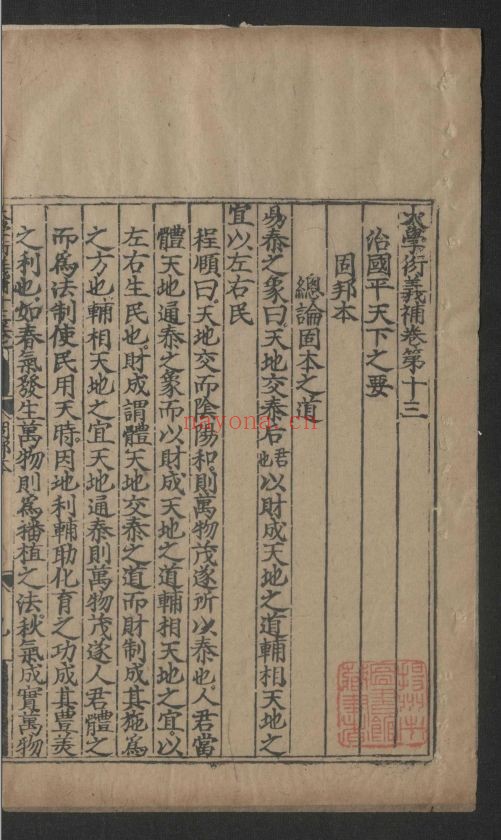 大學衍義補卷第十三
治國平天下之要
固邦本
總論固本之道
易泰之象曰天地交泰后君也以財成天地之道輔相天地之
宜以左右民
程頤曰天地交而陰陽和則萬物茂遂所以泰也人君當
體天地通泰之象而以財成天地之道輔相天地之宜以
左右生民也財成謂體天地交泰之道而財制成其施爲
之方也輔相天地之宜天地通泰則萬物茂遂人君體之
而爲法制使民用天時因地利輔助化育之功成其豊美
之利也如春氣發生萬物則爲播植之法秋氣成實萬物
nayona.cn